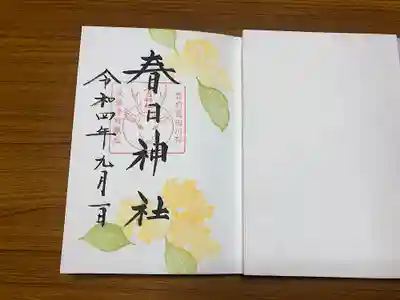 春日神社
令和四年九月一日